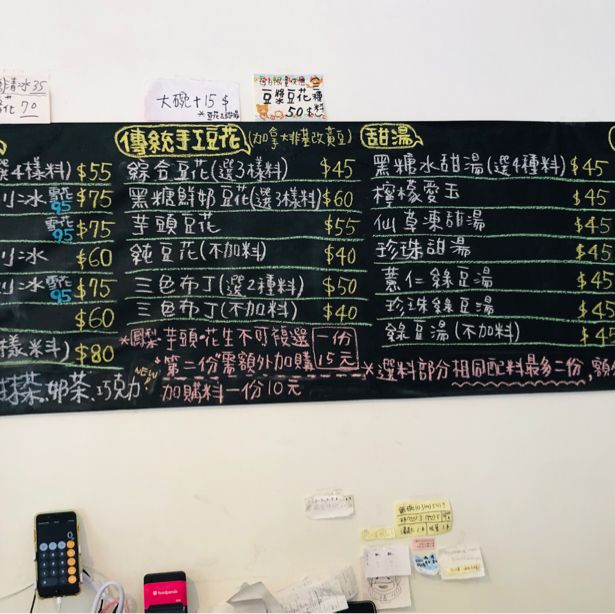 35
花 70
大碗+15$
豆漿豆花
50
選4樣料) $55
冰 雪花 95 $75
雪花 95 $75
冰 $60
冰 雪花 95 $75
$60
樣料) $80
抹茶、奶茶、巧克力
NEW
傳統手工豆花 (加拿大非基改黃豆)
綜合豆花(選3樣料) $45
黑糖鮮奶豆花(選3樣料) $60
芋頭豆花 $55
純豆花(不加料) $40
三色布丁(選2種料) $50
三色布丁(不加料) $40
*鳳梨 芋頭 花生不可複選 一份
*第二份需額外加購 15元
加購料一份10元
甜湯
黑糖水甜湯(選4種料) $45
檸檬愛玉 $45
仙草凍甜湯 $45
珍珠甜湯 $45
薏仁綠豆湯 $45
珍珠綠豆湯 $45
綠豆湯(不加料) $45
*選料部分相同配料最多二份,額
foodpanda